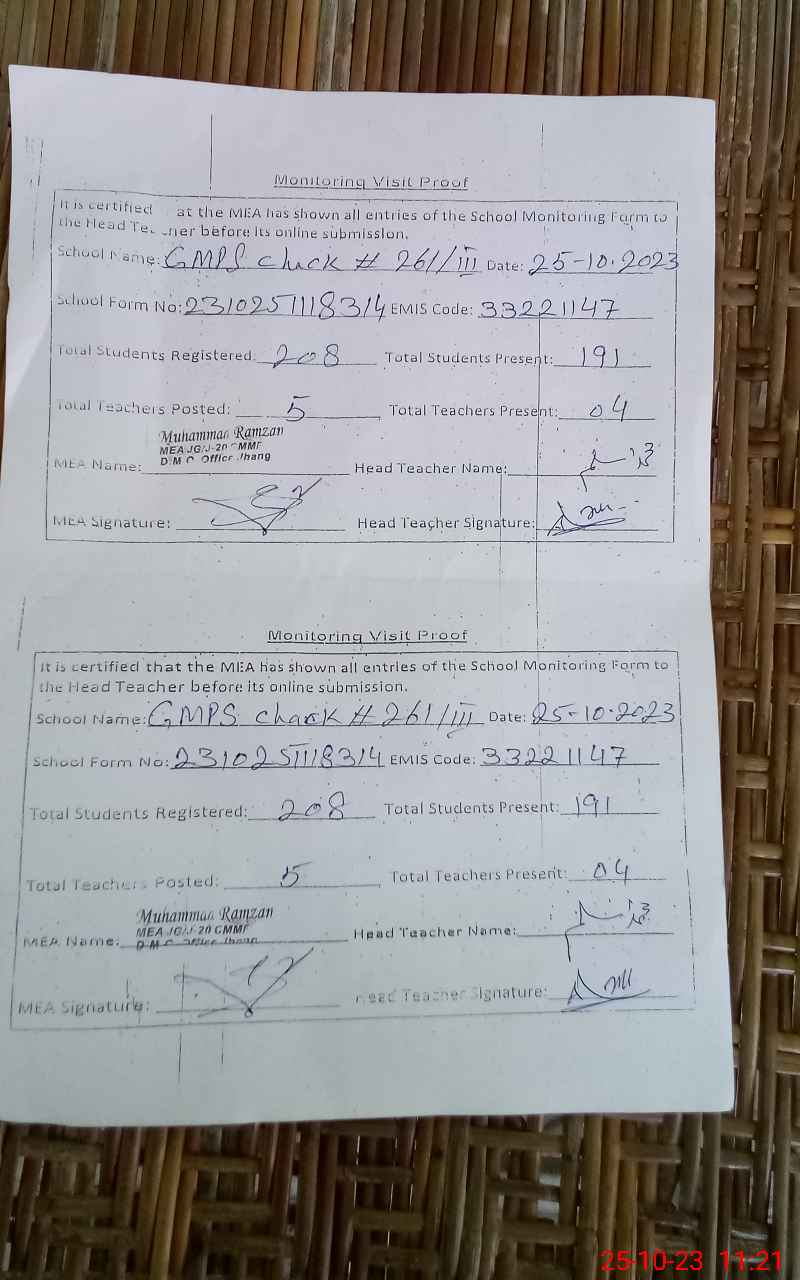 Monitoring Visit Proof
It is certified at the MEA has shown all entries of the School Monitoring Form to
the Head Te  her before its online submission.
School Name: GMPS chack # 261/III Date: 25-10-2023
School Form No: 2310251118314 EMIS Code: 33221147
Total Students Registered: 208 Total Students Present: 191
Total Teachers Posted: 5 Total Teachers Present: 04
Muhammad Ramzan
MEA JG/J-20 CMMF
D.M.O Office Jhang
MEA Name: Head Teacher Name:
MEA Signature: Head Teacher Signature:
Monitoring Visit Proof
It is certified that the MEA has shown all entries of the School Monitoring Form to
the Head Teacher before its online submission.
School Name: GMPS chack # 261/III Date: 25-10-2023
School Form No: 2310251118314 EMIS Code: 33221147
Total Students Registered: 208 Total Students Present: 191
Total Teachers Posted: 5 Total Teachers Present: 04
Muhammad Ramzan
MEA JG/J-20 CMMF
D.M.O Office Jhang
MEA Name: Head Teacher Name:
MEA Signature: Head Teacher Signature:
25-10-23 11:21